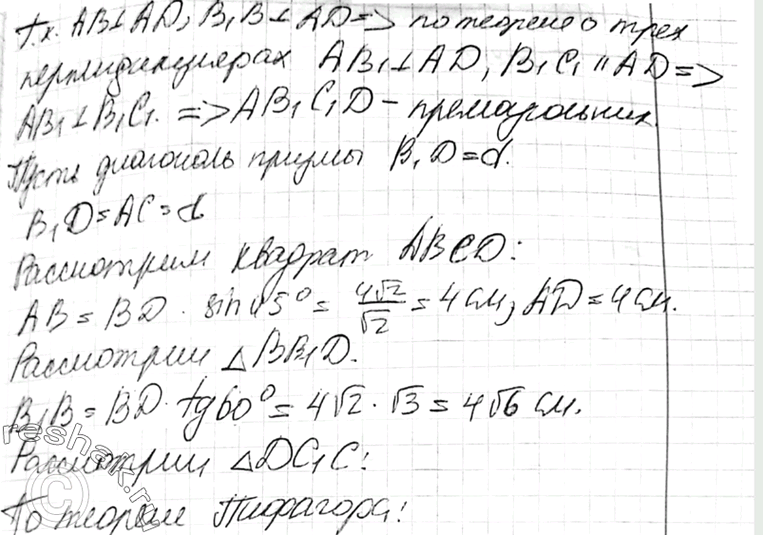 т.к. AB⊥AD, B₁B⊥AD=> по теореме о трех
перпендикулярах AB₁⊥AD, B₁C₁ || AD=>
AB₁⊥B₁C₁. => AB₁C₁D - прямоугольник.
Пусть диагональ призмы B₁D=d.
B₁D=AC=d
Рассмотрим квадрат ABCD:
AB = BD · sin 45° = 4√2/√2 = 4 см, AD = 4 см.
Рассмотрим △BB₁D.
B₁B = BD · tg60° = 4√2 · √3 = 4√6 см.
Рассмотрим △DC₁C:
По теореме Пифагора: